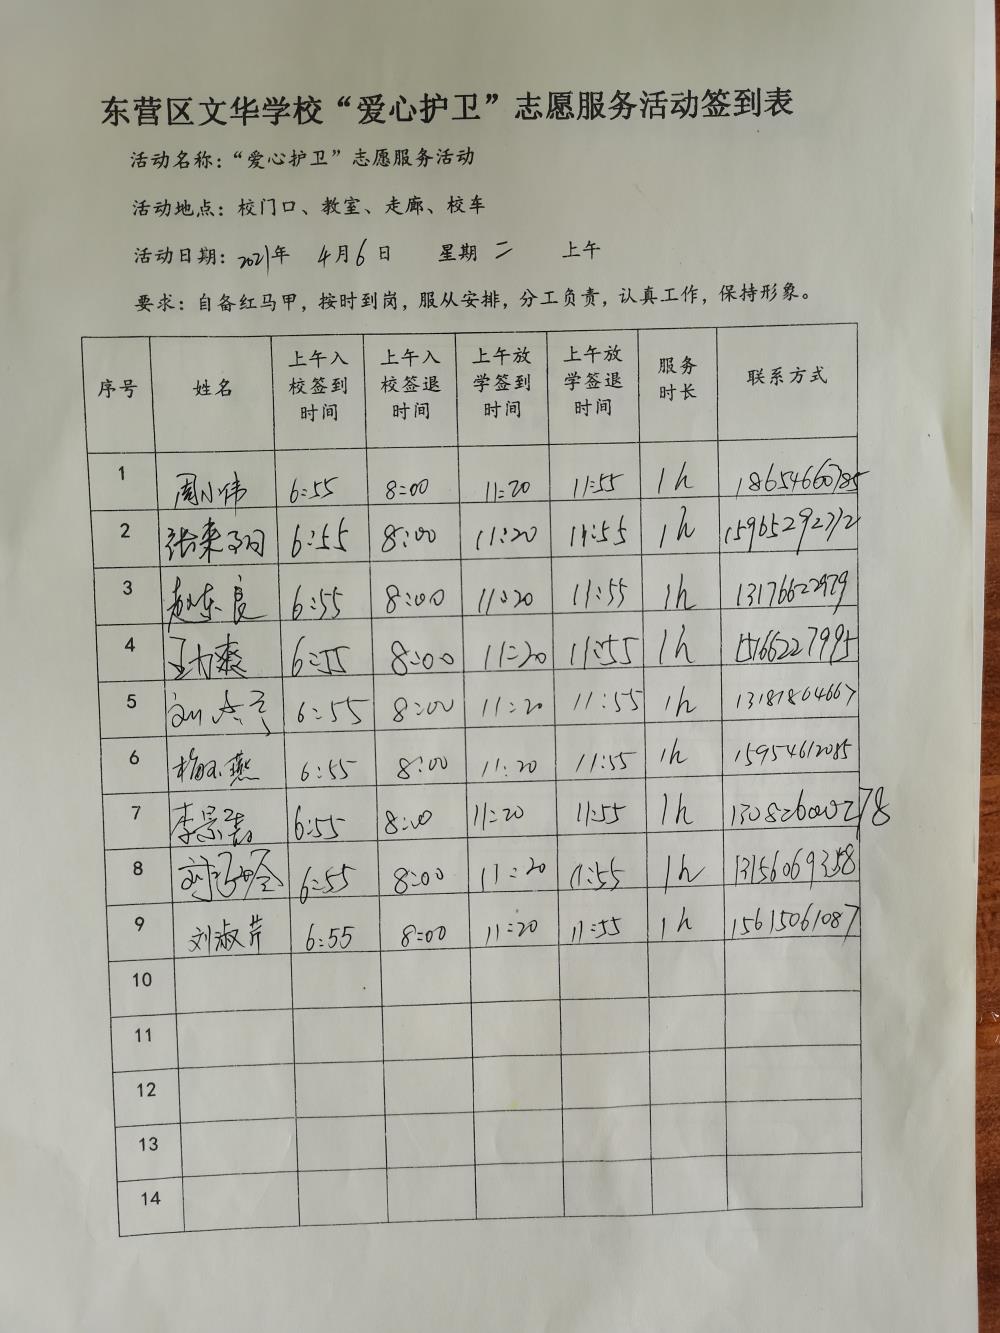 东营区文华学校“爱心护卫”志愿服务活动签到表
活动名称：“爱心护卫”志愿服务活动
活动地点：校门口、教室、走廊、校车
活动日期：2021年 4月6日 星期二 上午
要求：自备红马甲，按时到岗，服从安排，分工负责，认真工作，保持形象。
序号 姓名 上午入校签到时间 上午入校签退时间 上午放学签到时间 上午放学签退时间 服务时长 联系方式
1 周小伟 6:55 8:00 11:20 11:55 1h 18654660785
2 6:55 8:00 11:20 11:55 1h
3 赵东良 6:55 8:00 11:20 11:55 1h 13176622979
4 王力爽 6:55 8:00 11:20 11:55 1h 15166227995
5 6:55 8:00 11:20 11:55 1h 13181804667
6 6:55 8:00 11:20 11:55 1h 15954612085
7 6:55 8:00 11:20 11:55 1h
8 6:55 8:00 11:20 11:55 1h
9 刘淑芹 6:55 8:00 11:20 11:55 1h 15615061087
10
11
12
13
14